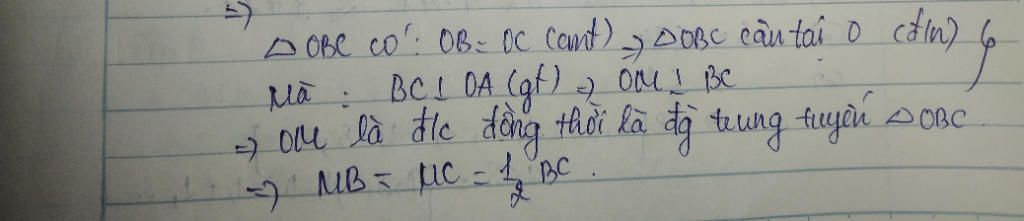 =>
△OBC có: OB = OC (cmt) => △OBC cân tại O (đ/n)
Mà : BC ⊥ OA (gt) => OM ⊥ BC
=> OM là đ/c đồng thời là đg trung tuyến △OBC.
=> MB = MC = 1/2 BC.